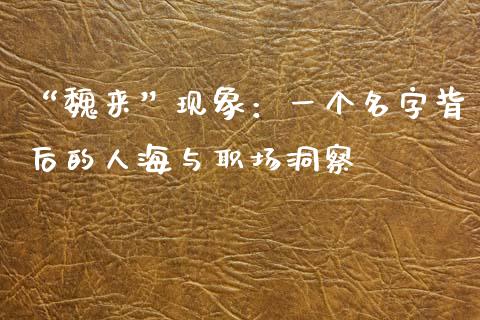 “魏来”现象：一个名字背
后的人海与职场洞察